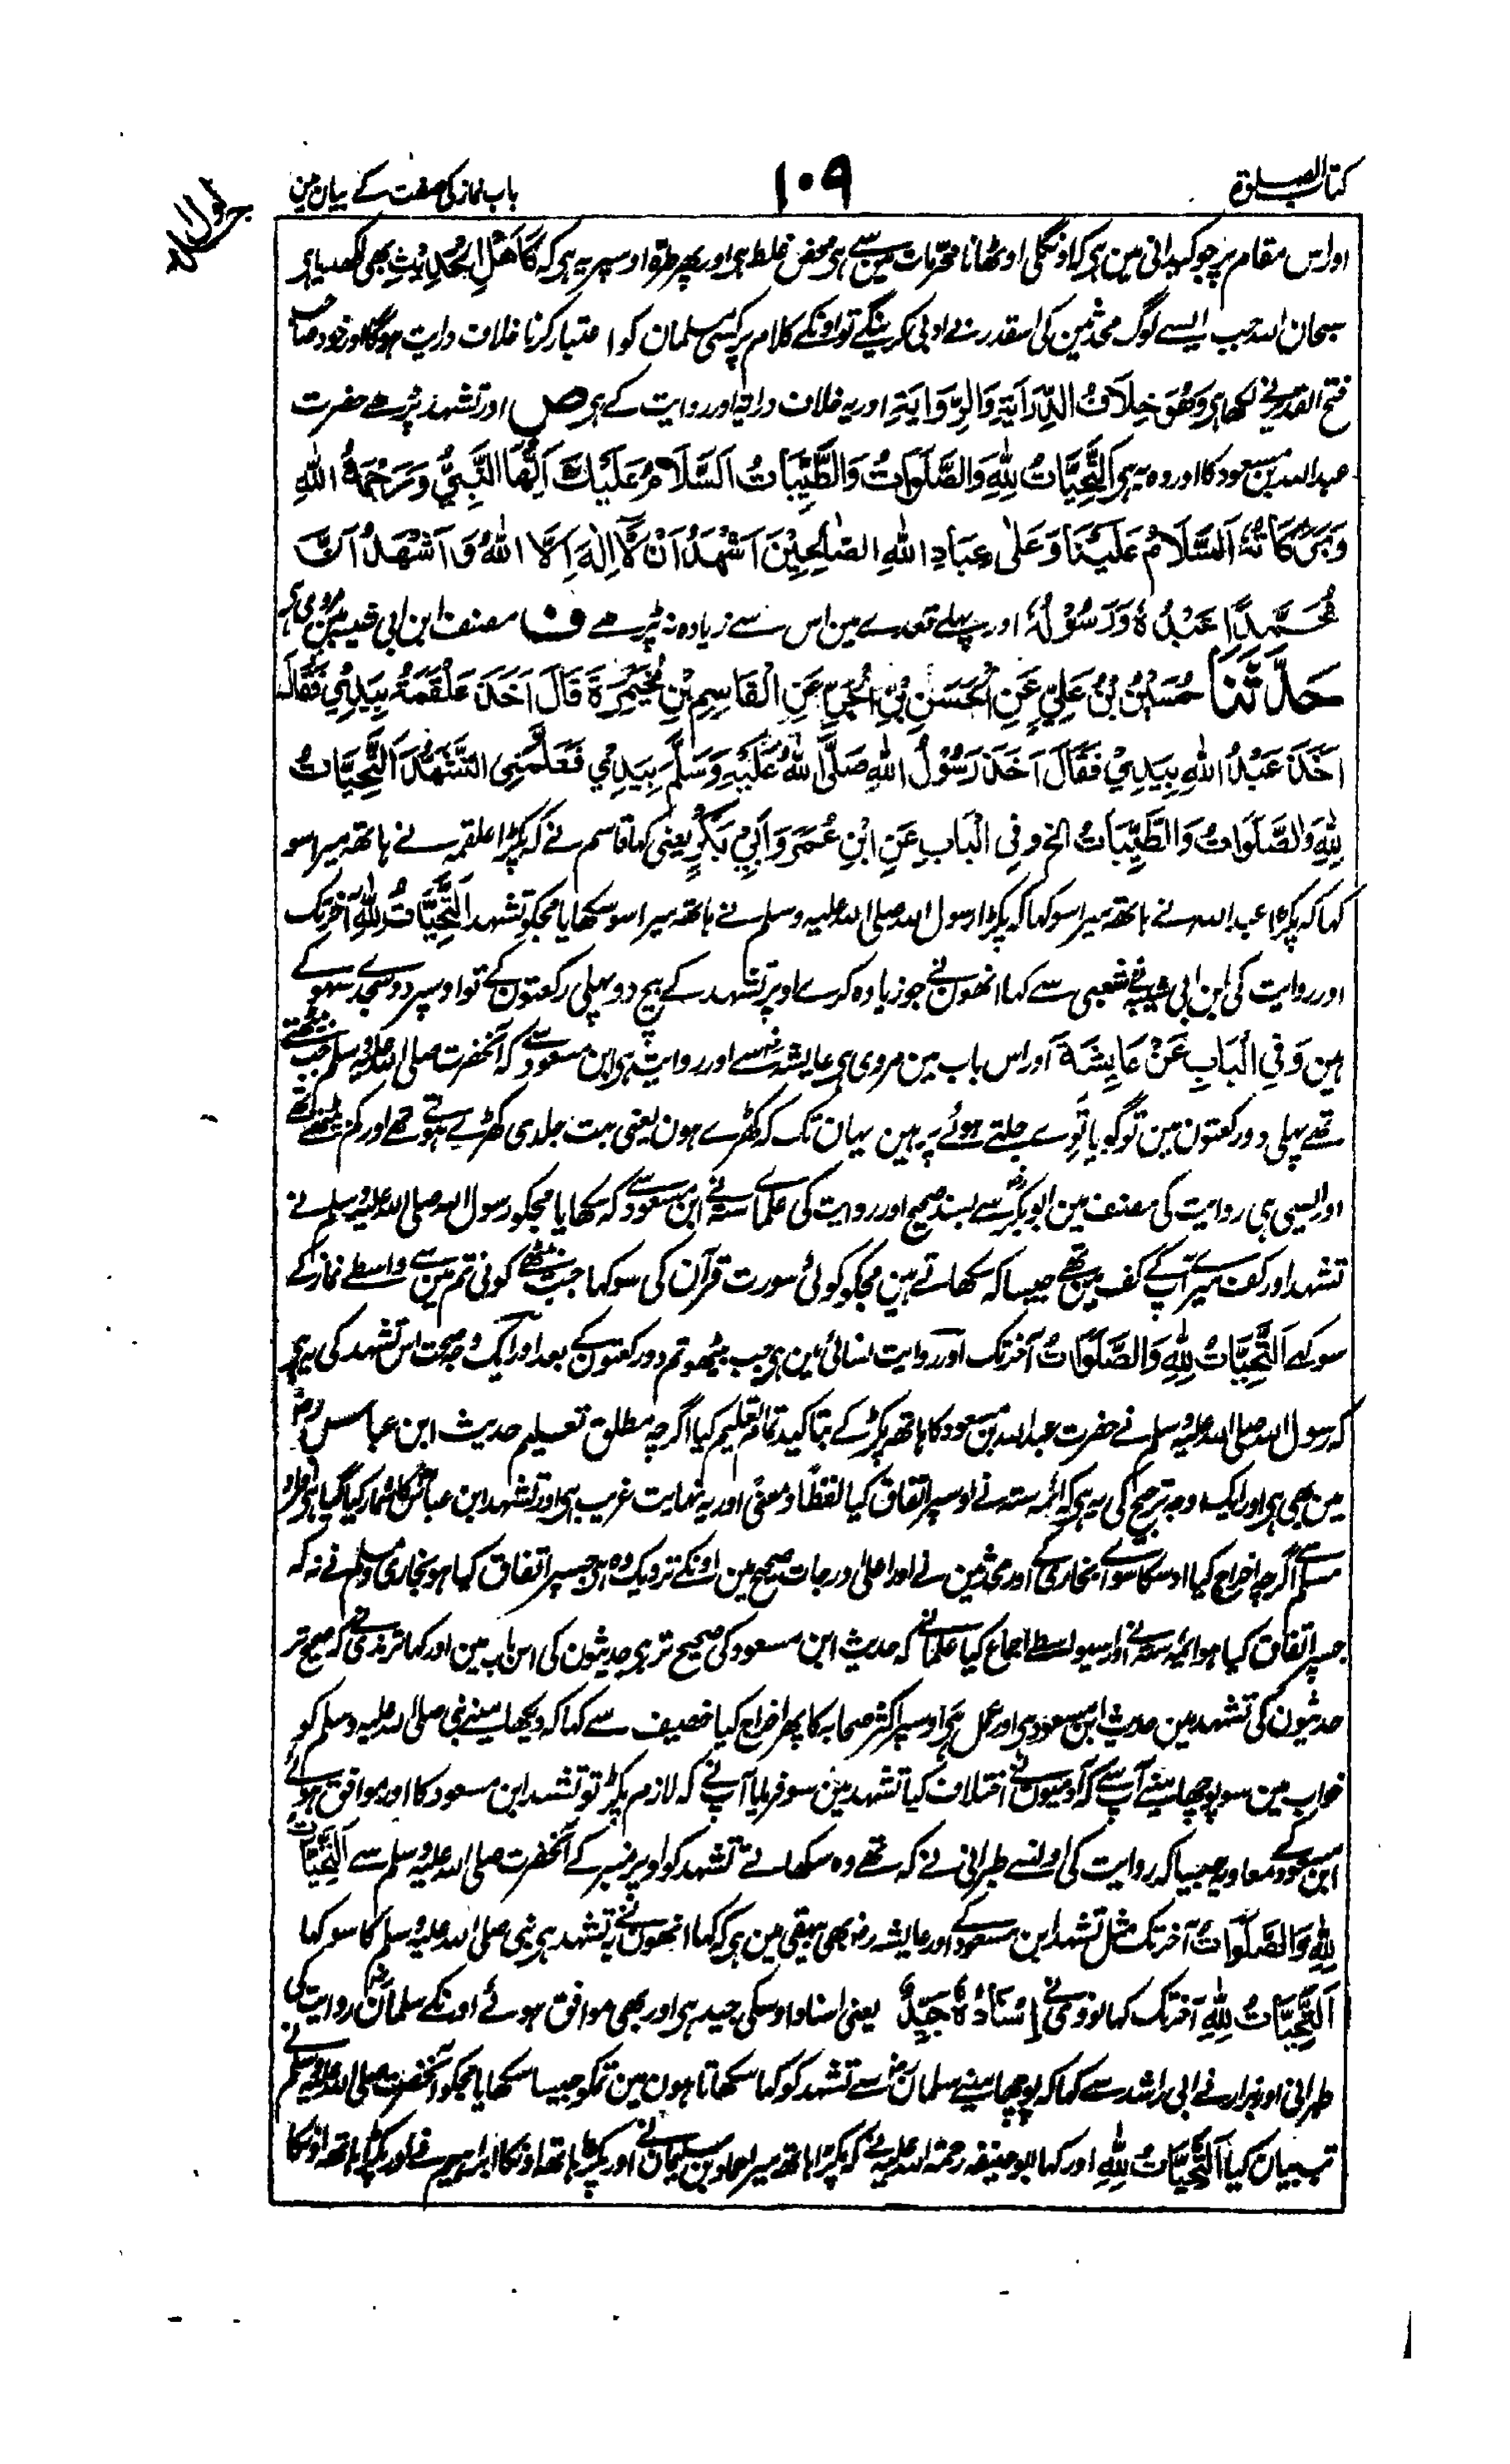 کتاب الصلوة
۱۰۹
باب نماز کی صفت کے بیان مین
جلد اول
اور اس مقام پر جو کیدانی مین ہی کہ اونگلی اوٹھانا محرمات مین سے ہی محض غلط ہی اور پھر طرہ اوسپر یہ ہی کہ کَاَھْلِ الْحَدِیْثِ بھی لکھدیا ہی
سبحان اللہ جب ایسے لوگ محدثین کی اسقدر بے ادبی کرینگے تو اونکے کلام پر کسی مسلمان کو اعتبار کرنا خلاف درایت ہوگا اور خود صاحب
فتح القدیر نے لکھا ہی وَھُوَ خِلَافُ الدِّرَایَةِ وَالرِّوَایَةِ اور یہ خلاف درایۃ اور روایت کے ہی ص اور تشہد پڑھے حضرت
عبداللہ بن مسعود کا اور وہ یہ ہی اَلتَّحِیَّاتُ لِلّٰہِ وَالصَّلَوَاتُ وَالطَّیِّبَاتُ اَلسَّلَامُ عَلَیْكَ اَیُّھَا النَّبِیُّ وَرَحْمَةُ اللّٰہِ
وَبَرَکَاتُہٗ اَلسَّلَامُ عَلَیْنَا وَعَلٰی عِبَادِ اللّٰہِ الصَّالِحِیْنَ اَشْھَدُ اَنْ لَّا اِلٰہَ اِلَّا اللّٰہُ وَاَشْھَدُ اَنَّ
مُحَمَّدًا عَبْدُہٗ وَرَسُوْلُہٗ اور پہلے قعدے مین اس سے زیادہ نہ پڑھے ف مصنف ابن ابی شیبہ مین مروی ہی
حَدَّثَنَا حُسَیْنُ بْنُ عَلِیٍّ عَنِ الْحَسَنِ بْنِ الْحُرِّ عَنِ الْقَاسِمِ بْنِ مُخَیْمِرَةَ قَالَ اَخَذَ عَلْقَمَةُ بِیَدِیْ فَقَالَ
اَخَذَ عَبْدُ اللّٰہِ بِیَدِیْ فَقَالَ اَخَذَ رَسُوْلُ اللّٰہِ صَلَّی اللّٰہُ عَلَیْہِ وَسَلَّمَ بِیَدِیْ فَعَلَّمَنِی التَّشَھُّدَ اَلتَّحِیَّاتُ
لِلّٰہِ وَالصَّلَوَاتُ وَالطَّیِّبَاتُ الخ وَفِی الْبَابِ عَنِ ابْنِ عُمَرَ وَاَبِیْ بَکْرٍ یعنی کہا قاسم نے کہ پکڑا علقمہ نے ہاتھ میرا سو
کہا کہ پکڑا عبداللہ نے ہاتھ میرا سو کہا کہ پکڑا رسول اللہ صلی اللہ علیہ وسلم نے ہاتھ میرا سو سکھایا مجکو تشہد اَلتَّحِیَّاتُ لِلّٰہِ آخر تک
اور روایت کی ابن ابی شیبہ نے شعبی سے کہا انھون نے جو زیادہ کرے اوپر تشہد کے بیچ دو پہلی رکعتون کے تو اوسپر دو سجدے سہو کے
ہین وَفِی الْبَابِ عَنْ عَائِشَةَ اور اس باب مین مروی ہی عایشہ رضہ سے اور روایت ہی ابن مسعود سے کہ آنحضرت صلی اللہ علیہ وسلم جب بیٹھتے
تھے پہلی دو رکعتون مین تو گویا توے جلتے ہوئے پر ہین یہان تک کہ کھڑے ہون یعنی بہت جلدی کھڑے ہوتے تھے اور کم بیٹھتے تھے
اور ایسی ہی روایت کی مصنف مین ابوبکر رضہ سے بسند صحیح اور روایت کی علماے ستہ نے ابن مسعود سے کہ سکھایا مجکو رسول اللہ صلی اللہ علیہ وسلم نے
تشہد اور کف میرے آپ کے کف مین تھے جیسا کہ سکھاتے ہین مجکو کوئی سورت قرآن کی سو کہا جب بیٹھے کوئی تم مین سے واسطے نماز کے
سو کہے اَلتَّحِیَّاتُ لِلّٰہِ وَالصَّلَوَاتُ آخر تک اور روایت نسائی مین ہی جب بیٹھو تم دو رکعتون کے بعد اور ایک وجہ صحت اس تشہد کی یہ ہی
کہ رسول اللہ صلی اللہ علیہ وسلم نے حضرت عبداللہ بن مسعود کا ہاتھ پکڑ کے بتاکید تمام تعلیم کیا اگرچہ مطلق تعلیم حدیث ابن عباس رضہ
مین بھی ہی اور ایک اور وجہ ترجیح کی یہ ہی کہ ائمہ ستہ نے اوسپر اتفاق کیا لفظاً و معنیً اور یہ نہایت غریب ہی اور تشہد ابن عباس کا شمار کیا گیا ہی افراد
مسلم سے اگرچہ اخراج کیا اوسکا سوائے بخاری کے اور محدثین نے اور اعلی درجات صحیح مین اونکے نزدیک وہ ہی جسپر اتفاق کیا ہو بخاری مسلم نے نہ کہ
جسپر اتفاق کیا ہو ائمہ ستہ نے اور اسیواسطے اجماع کیا علما نے کہ حدیث ابن مسعود کی صحیح تر ہی حدیثون کی اس باب مین اور کہا ترمذی نے کہ صحیح تر
حدیثون کی تشہد مین حدیث ابن مسعود ہی اور عمل ہی اوسپر اکثر صحابہ کا پھر اخراج کیا خصیف سے کہا کہ دیکھا مینے نبی صلی اللہ علیہ وسلم کو
خواب مین سو پوچھا مینے آپ سے کہ آدمیون نے اختلاف کیا تشہد مین سو فرمایا آپ نے کہ لازم پکڑ تو تشہد ابن مسعود کا اور موافق ہوئے
ابن مسعود کے معاویہ جیسا کہ روایت کی اونسے طبرانی نے کہ تھے وہ سکھاتے تشہد کو اوپر منبر کے آنحضرت صلی اللہ علیہ وسلم سے اَلتَّحِیَّاتُ
لِلّٰہِ وَالصَّلَوَاتُ آخر تک مثل تشہد ابن مسعود کے اور عایشہ رضہ بھی بیہقی مین ہی کہ کہا انھون نے یہ تشہد ہی نبی صلی اللہ علیہ وسلم کا سو کہا
اَلتَّحِیَّاتُ لِلّٰہِ آخر تک کہا نووی نے اِسْنَادُہٗ جَیِّدٌ یعنی اسناد اوسکی جید ہی اور بھی موافق ہوئے اونکے سلمان رضہ روایت کی
طبرانی اور بزار نے ابی راشد سے کہا کہ پوچھا مینے سلمان رضہ سے تشہد کو کہا سکھاتا ہون مین تمکو جیسا سکھایا مجکو آنحضرت صلی اللہ علیہ وسلم نے
تب بیان کیا اَلتَّحِیَّاتُ لِلّٰہِ اور کہا ابو حنیفہ رحمۃ اللہ علیہ نے کہ پکڑا ہاتھ میرا حماد بن سلیمان نے اور پکڑا ہاتھ اونکا ابراہیم نے اور پکڑا ہاتھ اونکا